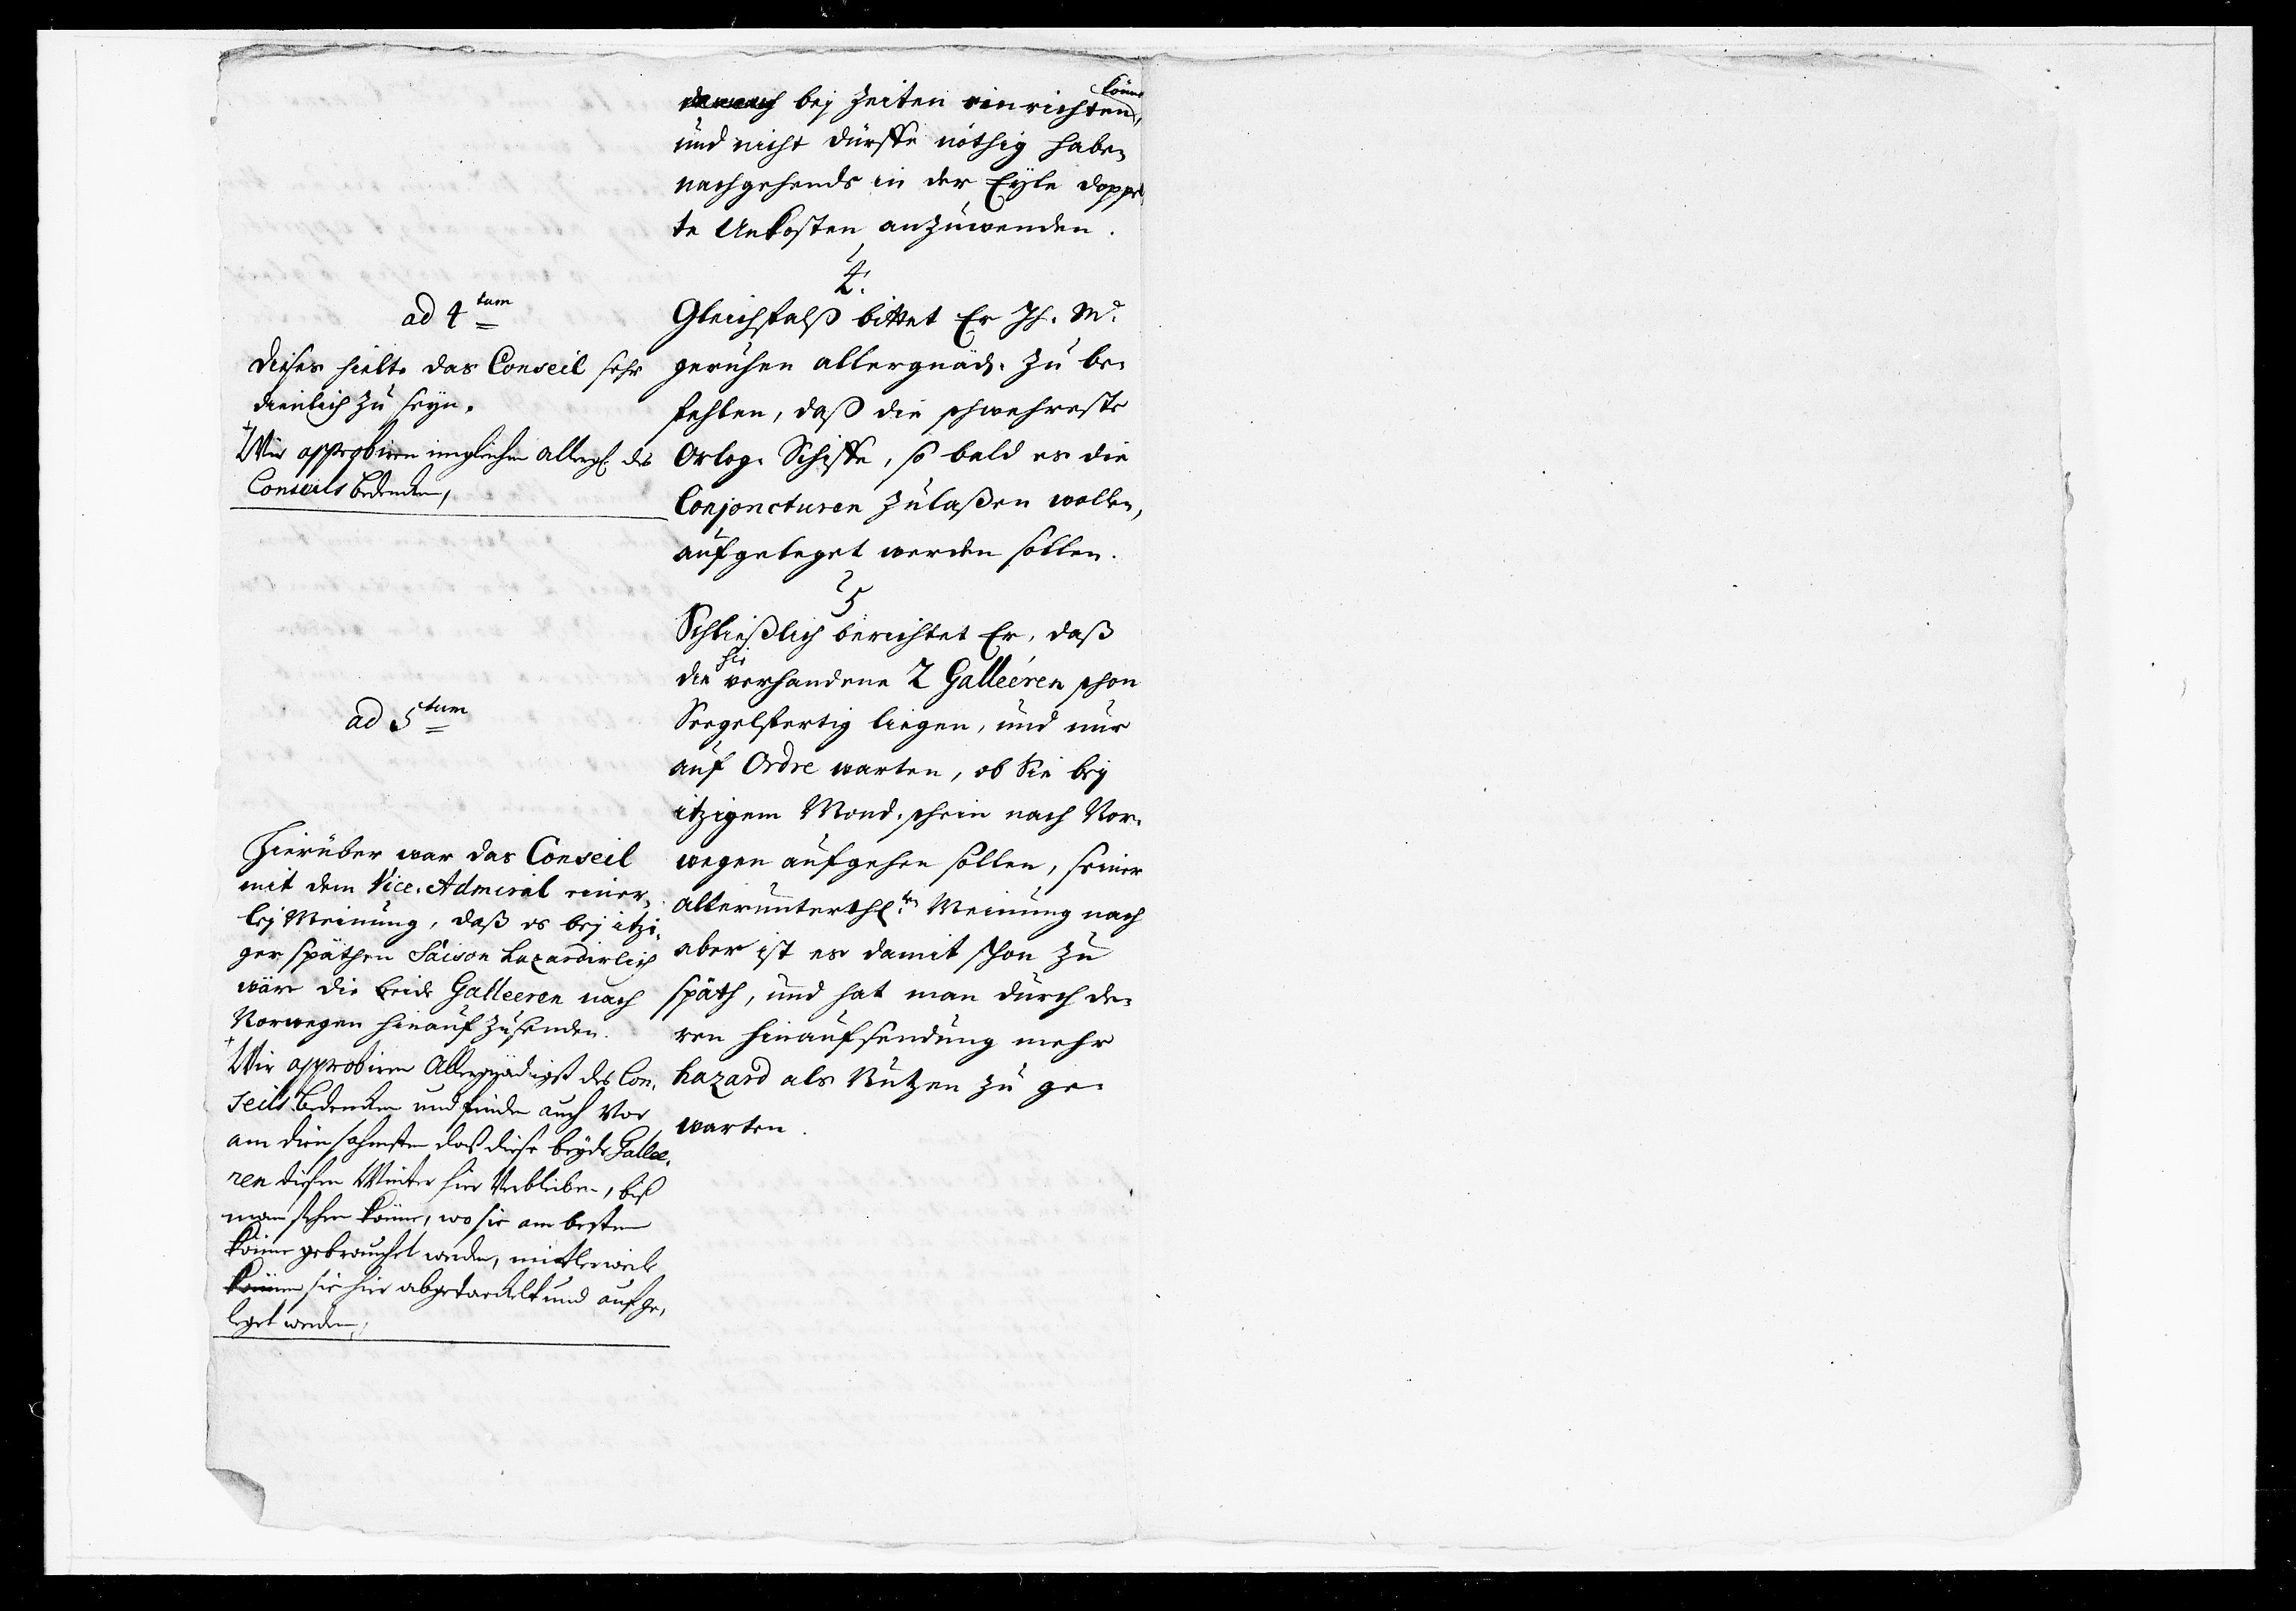 bej Zeiten einrichten könne,
und nicht dürffe nöthig haben
nachgehends in der Eyle doppel
te Unkosten anzuwenden.
4.
Gleichfalß bittet Er Ih. Mt.
geruhen allergnäd. zu be-
fehlen, daß die schwehreste
Orlog-Schiffe, so bald es die
Conjoncturen zulaßen wollen,
aufgeleget werden sollen.
5
Schließlich berichtet Er, daß
die hie verhandene 2 Galléeren schon
Seegelfertig liegen, und nur
auf Ordre warten, ob Sie bej
itzigem Mond-schein nach Nor-
wegen aufgehen sollen, seiner
allerunterthl.sten Meinung nach
aber ist es damit schon zu
späth, und hat man durch de-
ren hinaufsendung mehr
hazard als Nutzen zu ge-
warten.
ad 4tum
Dieses hielte das Conseil sehr
dienlich zu seyn.
Wir approbiren imgleichen allergl. des
Conseils bedencken,
ad 5tum
Hierüber war das Conseil
mit dem Vice-Admiral einer-
lej Meinung, daß es bej itzi-
ger späthen Saison hazardirlich
wäre die beide Galleeren nach
Norwegen hinauf zusenden.
Wir approbiren Allergnädigst des Con-
seils bedencken und finden auch vor
am diensahmsten daß diese beyde Gallee-
ren diesen Winter hier verbleiben, biß
man sehen könne, wo sie am besten
könne gebrauchet werden, mittlerweile
können sie hier abgetackelt und aufge-
leget werden,